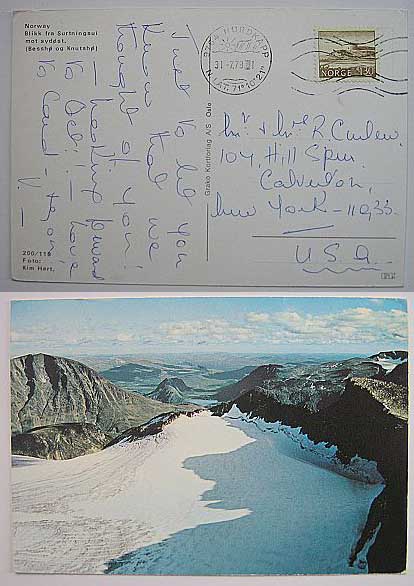 Norway
Blikk fra Surtningsui
mot syddøst.
(Besshø og Knutshø)
Just to let you
know that we
thought of you.
— looking forward
to Deli — love
to Carol +
200/119
Foto:
Kim Hart.
Grako Kortforlag A/S Oslo
9764 NORDKAPP
31.-7.78
N.LAT. 71°10'21"
NORGE 130
Mr + Mrs R. Curlew.
104, Hill Spur
Calverton,
New York — 11933.
U.S.A.